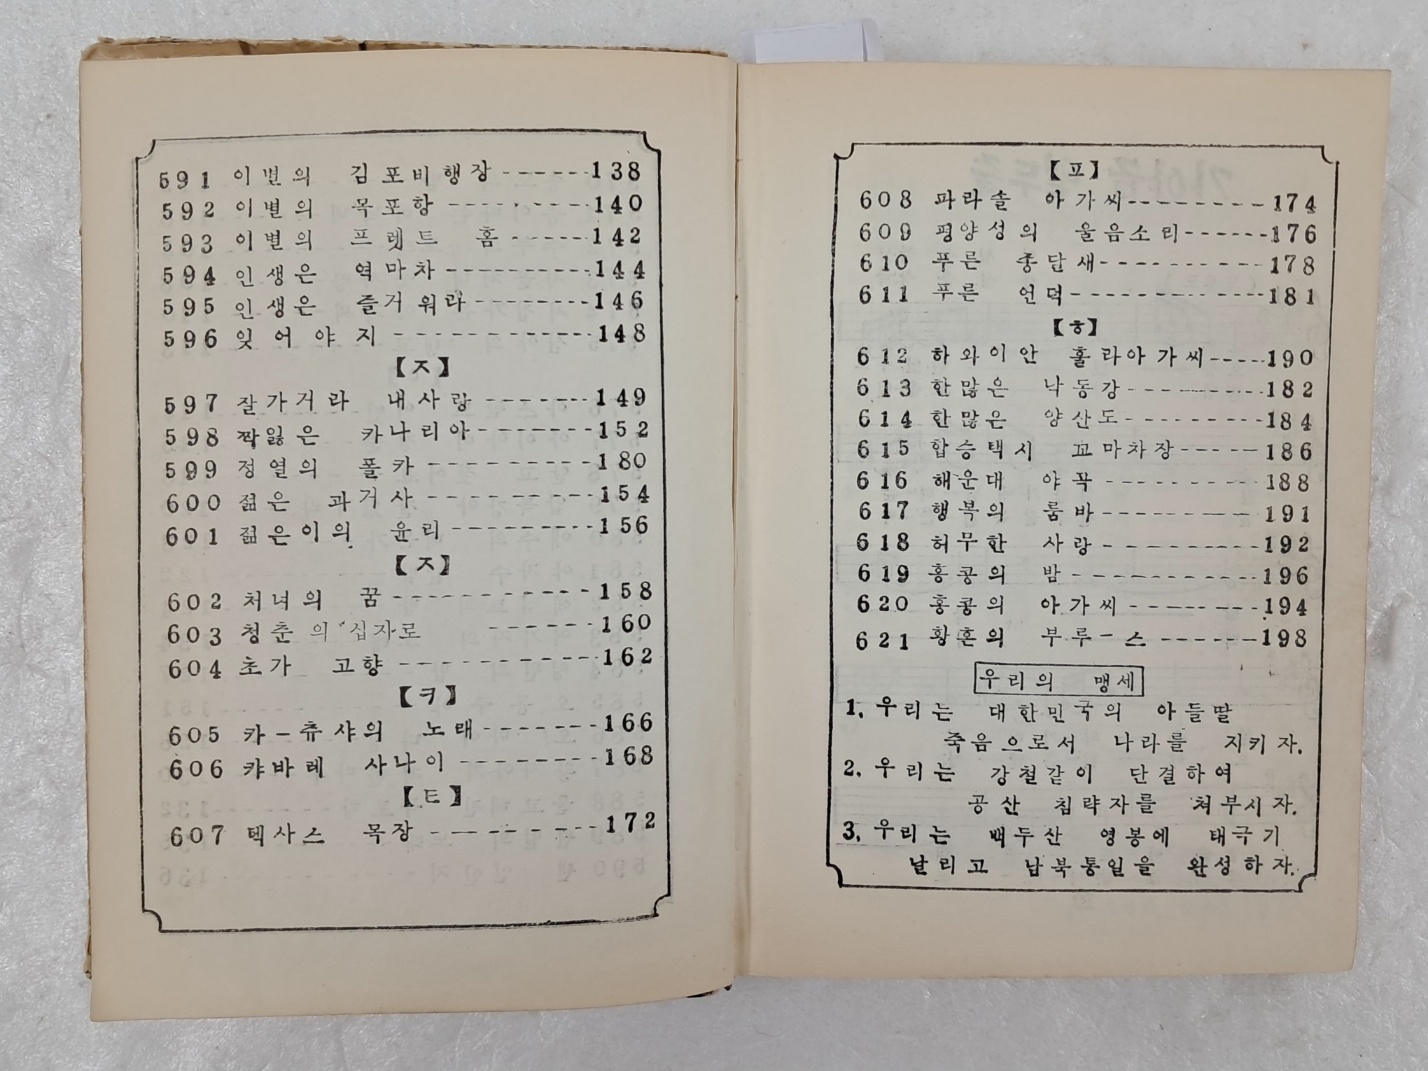 591 이별의 김포비행장------138
592 이별의 목포항---------140
593 이별의 프렛트 홈------142
594 인생은 역마차----------144
595 인생은 즐거워라--------146
596 잊어야지------------148
【ㅈ】
597 잘가거라 내사랑-------149
598 짝잃은 카나리아--------152
599 정열의 폴카-----------180
600 젊은 과거사-----------154
601 젊은이의 윤리---------156
【ㅈ】
602 처녀의 꿈------------158
603 청춘의 십자로 ------160
604 초가 고향------------162
【ㅋ】
605 카-츄샤의 노래-------166
606 캬바레 사나이--------168
【ㅌ】
607 텍사스 목장----------172
【ㅍ】
608 파라솔 아가씨---------174
609 평양성의 울음소리------176
610 푸른 종달새-----------178
611 푸른 언덕------------181
【ㅎ】
612 하와이안 훌라아가씨-----190
613 한많은 낙동강---------182
614 한많은 양산도---------184
615 합승택시 꼬마차장-----186
616 해운대 야곡----------188
617 행복의 룸바----------191
618 허무한 사랑----------192
619 홍콩의 밤------------196
620 홍콩의 아가씨--------194
621 황혼의 부루-스-------198
우리의 맹세
1. 우리는 대한민국의 아들딸
죽음으로서 나라를 지키자.
2. 우리는 강철같이 단결하여
공산 침략자를 쳐부시자.
3. 우리는 백두산 영봉에 태극기
날리고 남북통일을 완성하자.